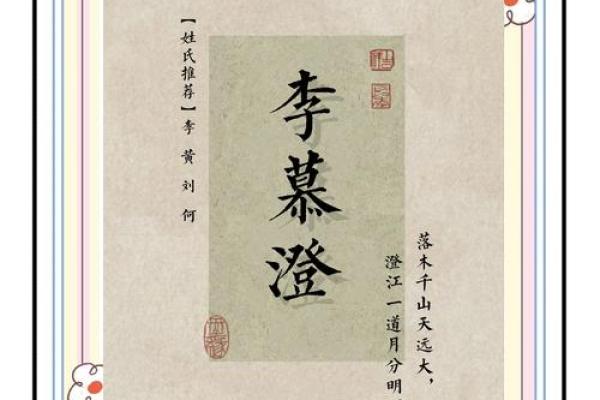 【姓氏推荐】李 黄 刘 何
李慕澄
落木千山天远大，
澄江一道月分明